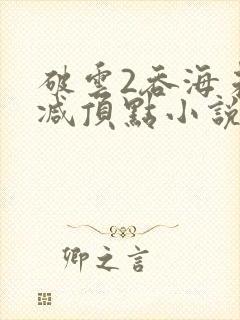 破雲2吞海
減頂點小說
卿之言